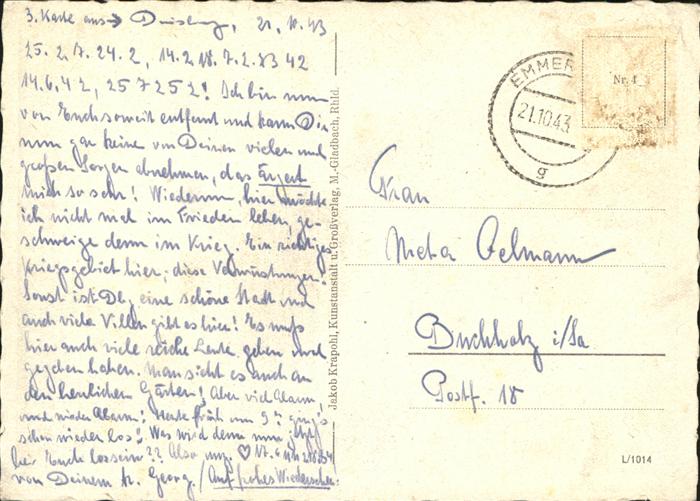 3. Karte aus → Duisburg, 21.10.43
25. 2. 7. 24. 2, 14. 2 18. 7. 2. 83 42
14. 6. 42, 25 7 25 2! Ich bin nun
von Euch soweit entfernt und kann Dir
nun gar keine von Deinen vielen und
großen Sorgen abnehmen, das Ärgert
mich so sehr! Wiederum, hier möchte
ich nicht mal im Frieden leben, ge-
schweige denn im Krieg. Ein richtiges
Kriegsgebiet hier, diese Verwüstungen.
Sonst ist Dbg. eine schöne Stadt und
auch viele Villen gibt es hier! Es muß
hier auch viele reiche Leute geben und
gegeben haben. Man sieht es auch an
den herrlichen Gärten! Aber viel Alarm
und wieder Alarm! Heute früh um 9 h ging's
schon wieder los! Was wird denn nun
bei Euch los sein?? Also
von Deinem Georg / Auf frohes Wiedersehen!
Jakob Krapohl, Kunstanstalt u. Großverlag, M.-Gladbach, Rhld.
EMMER
21.10.43
g
Nr. 4
Frau
Meta Oelmann
Buchholz i/Sa
Postf. 18
L/1014